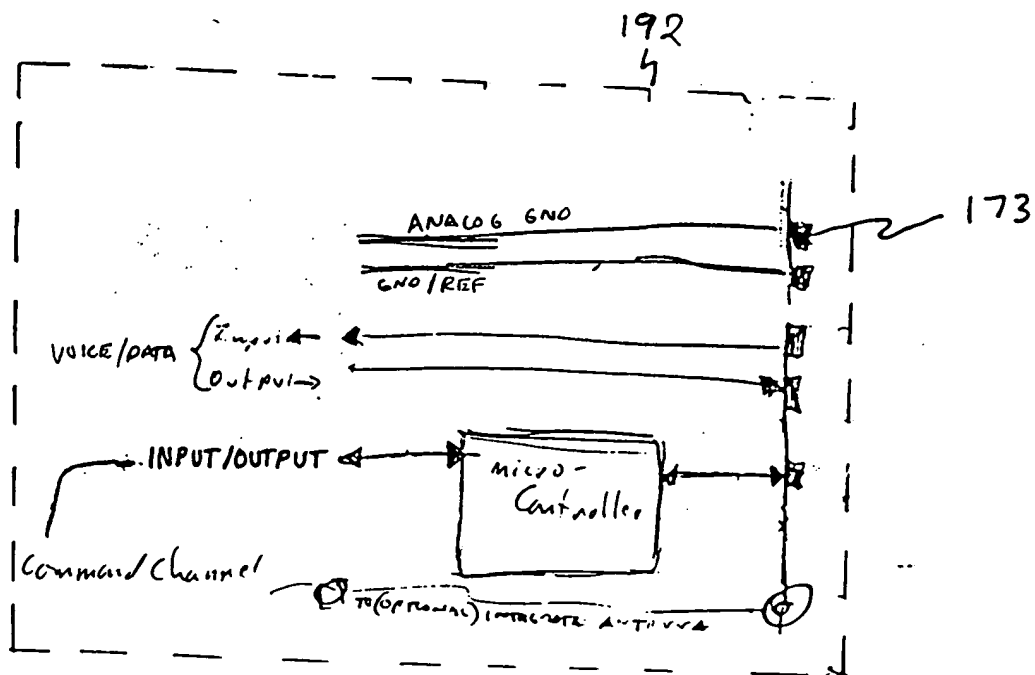 192
173
ANALOG GND
GND/REF
VOICE/DATA
Input
Output
INPUT/OUTPUT
micro-
Controller
Command Channel
TO (OPTIONAL) INTEGRATE ANTENNA